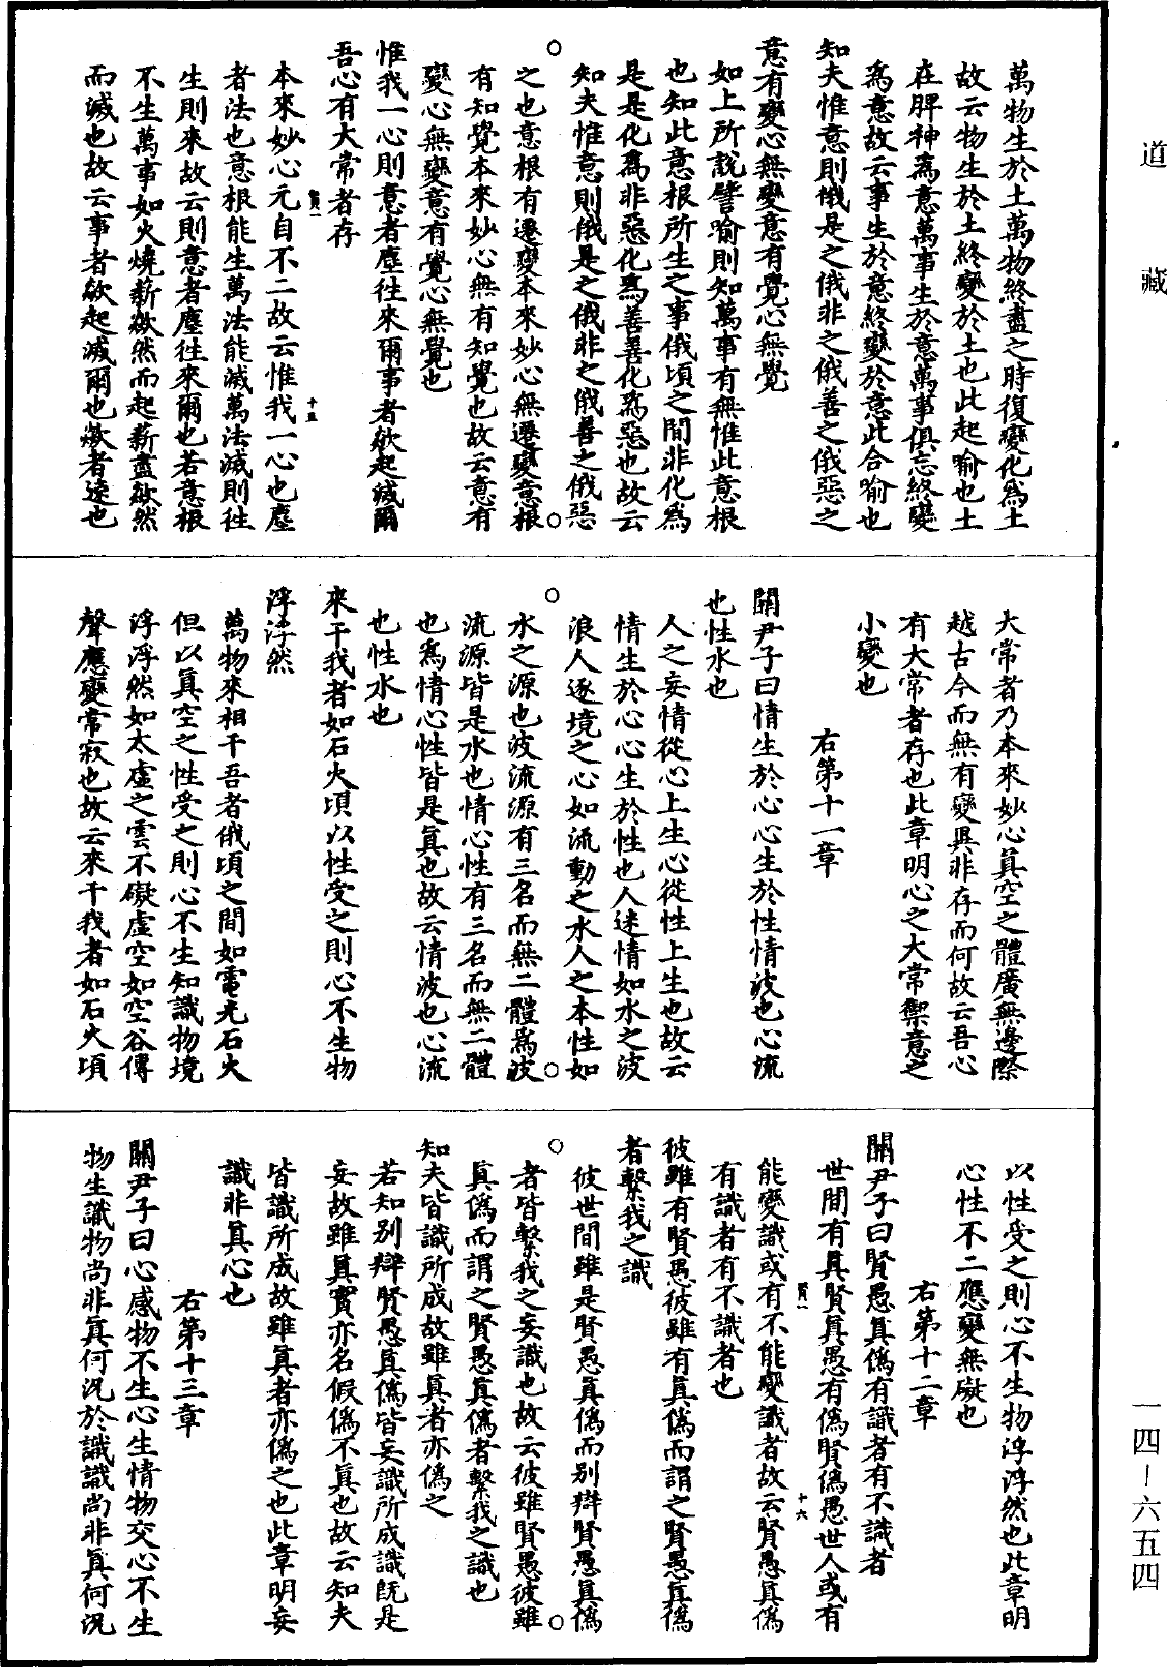 道藏
萬物生於土萬物終盡之時復變化為土
故云物生於土終變於土也此起喻也土
在脾神為意萬事生於意萬事俱忘終變
為意故云事生於意終變於意此合喻也
知夫惟意則俄是之俄非之俄善之俄惡之
意有變心無變意有覺心無覺
如上所說譬喻則知萬事有無惟此意根
也知此意根所生之事俄頃之間非化為
是是化為非惡化為善善化為惡也故云
知夫惟意則俄是之俄非之俄善之俄惡
之也意根有遷變本來妙心無遷變意根
有知覺本來妙心無有知覺也故云意有
變心無變意有覺心無覺也
惟我一心則意者塵往來爾事者欻起滅爾
吾心有大常者存
本來妙心元自不二故云惟我一心也塵
賢一
十五
者法也意根能生萬法能滅萬法滅則往
生則來故云則意者塵往來爾也若意根
不生萬事如火燒薪欻然而起薪盡欻然
而滅也故云事者欻起滅爾也欻者遽也
大常者乃本來妙心真空之體廣無邊際
越古今而無有變異非存而何故云吾心
有大常者存也此章明心之大常禦意之
小變也
右第十一章
關尹子曰情生於心心生於性情波也心流
也性水也
人之妄情從心上生心從性上生也故云
情生於心心生於性也人迷情如水之波
浪人逐境之心如流動之水人之本性如
水之源也波流源有三名而無二體為波
流源皆是水也情心性有三名而無二體
也為情心性皆是真也故云情波也心流
也性水也
來干我者如石火頃以性受之則心不生物
浮浮然
萬物來相干吾者俄頃之間如電光石火
但以真空之性受之則心不生知識物境
浮浮然如太虛之雲不礙虛空如空谷傳
聲應變常寂也故云來干我者如石火頃
以性受之則心不生物浮浮然也此章明
心性不二應變無礙也
右第十二章
關尹子曰賢愚真偽有識者有不識者
世間有真賢真愚有偽賢偽愚世人或有
能變識或有不能變識者故云賢愚真偽
賢一
十六
有識者有不識者也
彼雖有賢愚彼雖有真偽而謂之賢愚真偽
者繫我之識
彼世間雖是賢愚真偽而別辯賢愚真偽
者皆繫我之妄識也故云彼雖賢愚彼雖
真偽而謂之賢愚真偽者繫我之識也
知夫皆識所成故雖真者亦偽之
若知別辯賢愚真偽皆妄識所成識既是
妄故雖真實亦名假偽不真也故云知夫
皆識所成故雖真者亦偽之也此章明妄
識非真心也
右第十三章
關尹子曰心感物不生心生情物交心不生
物生識物尚非真何況於識識尚非真何況
一四—六五四